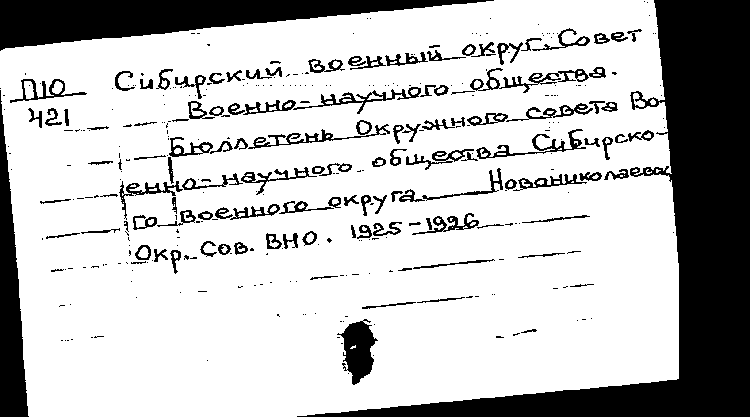 П10 Сибирский военный округ. Совет
421 Военно-научного общества.
Бюллетень Окружного совета Во-
енно-научного общества Сибирско-
го военного округа. Новониколаевск,
Окр. Сов. ВНО. 1925-1926